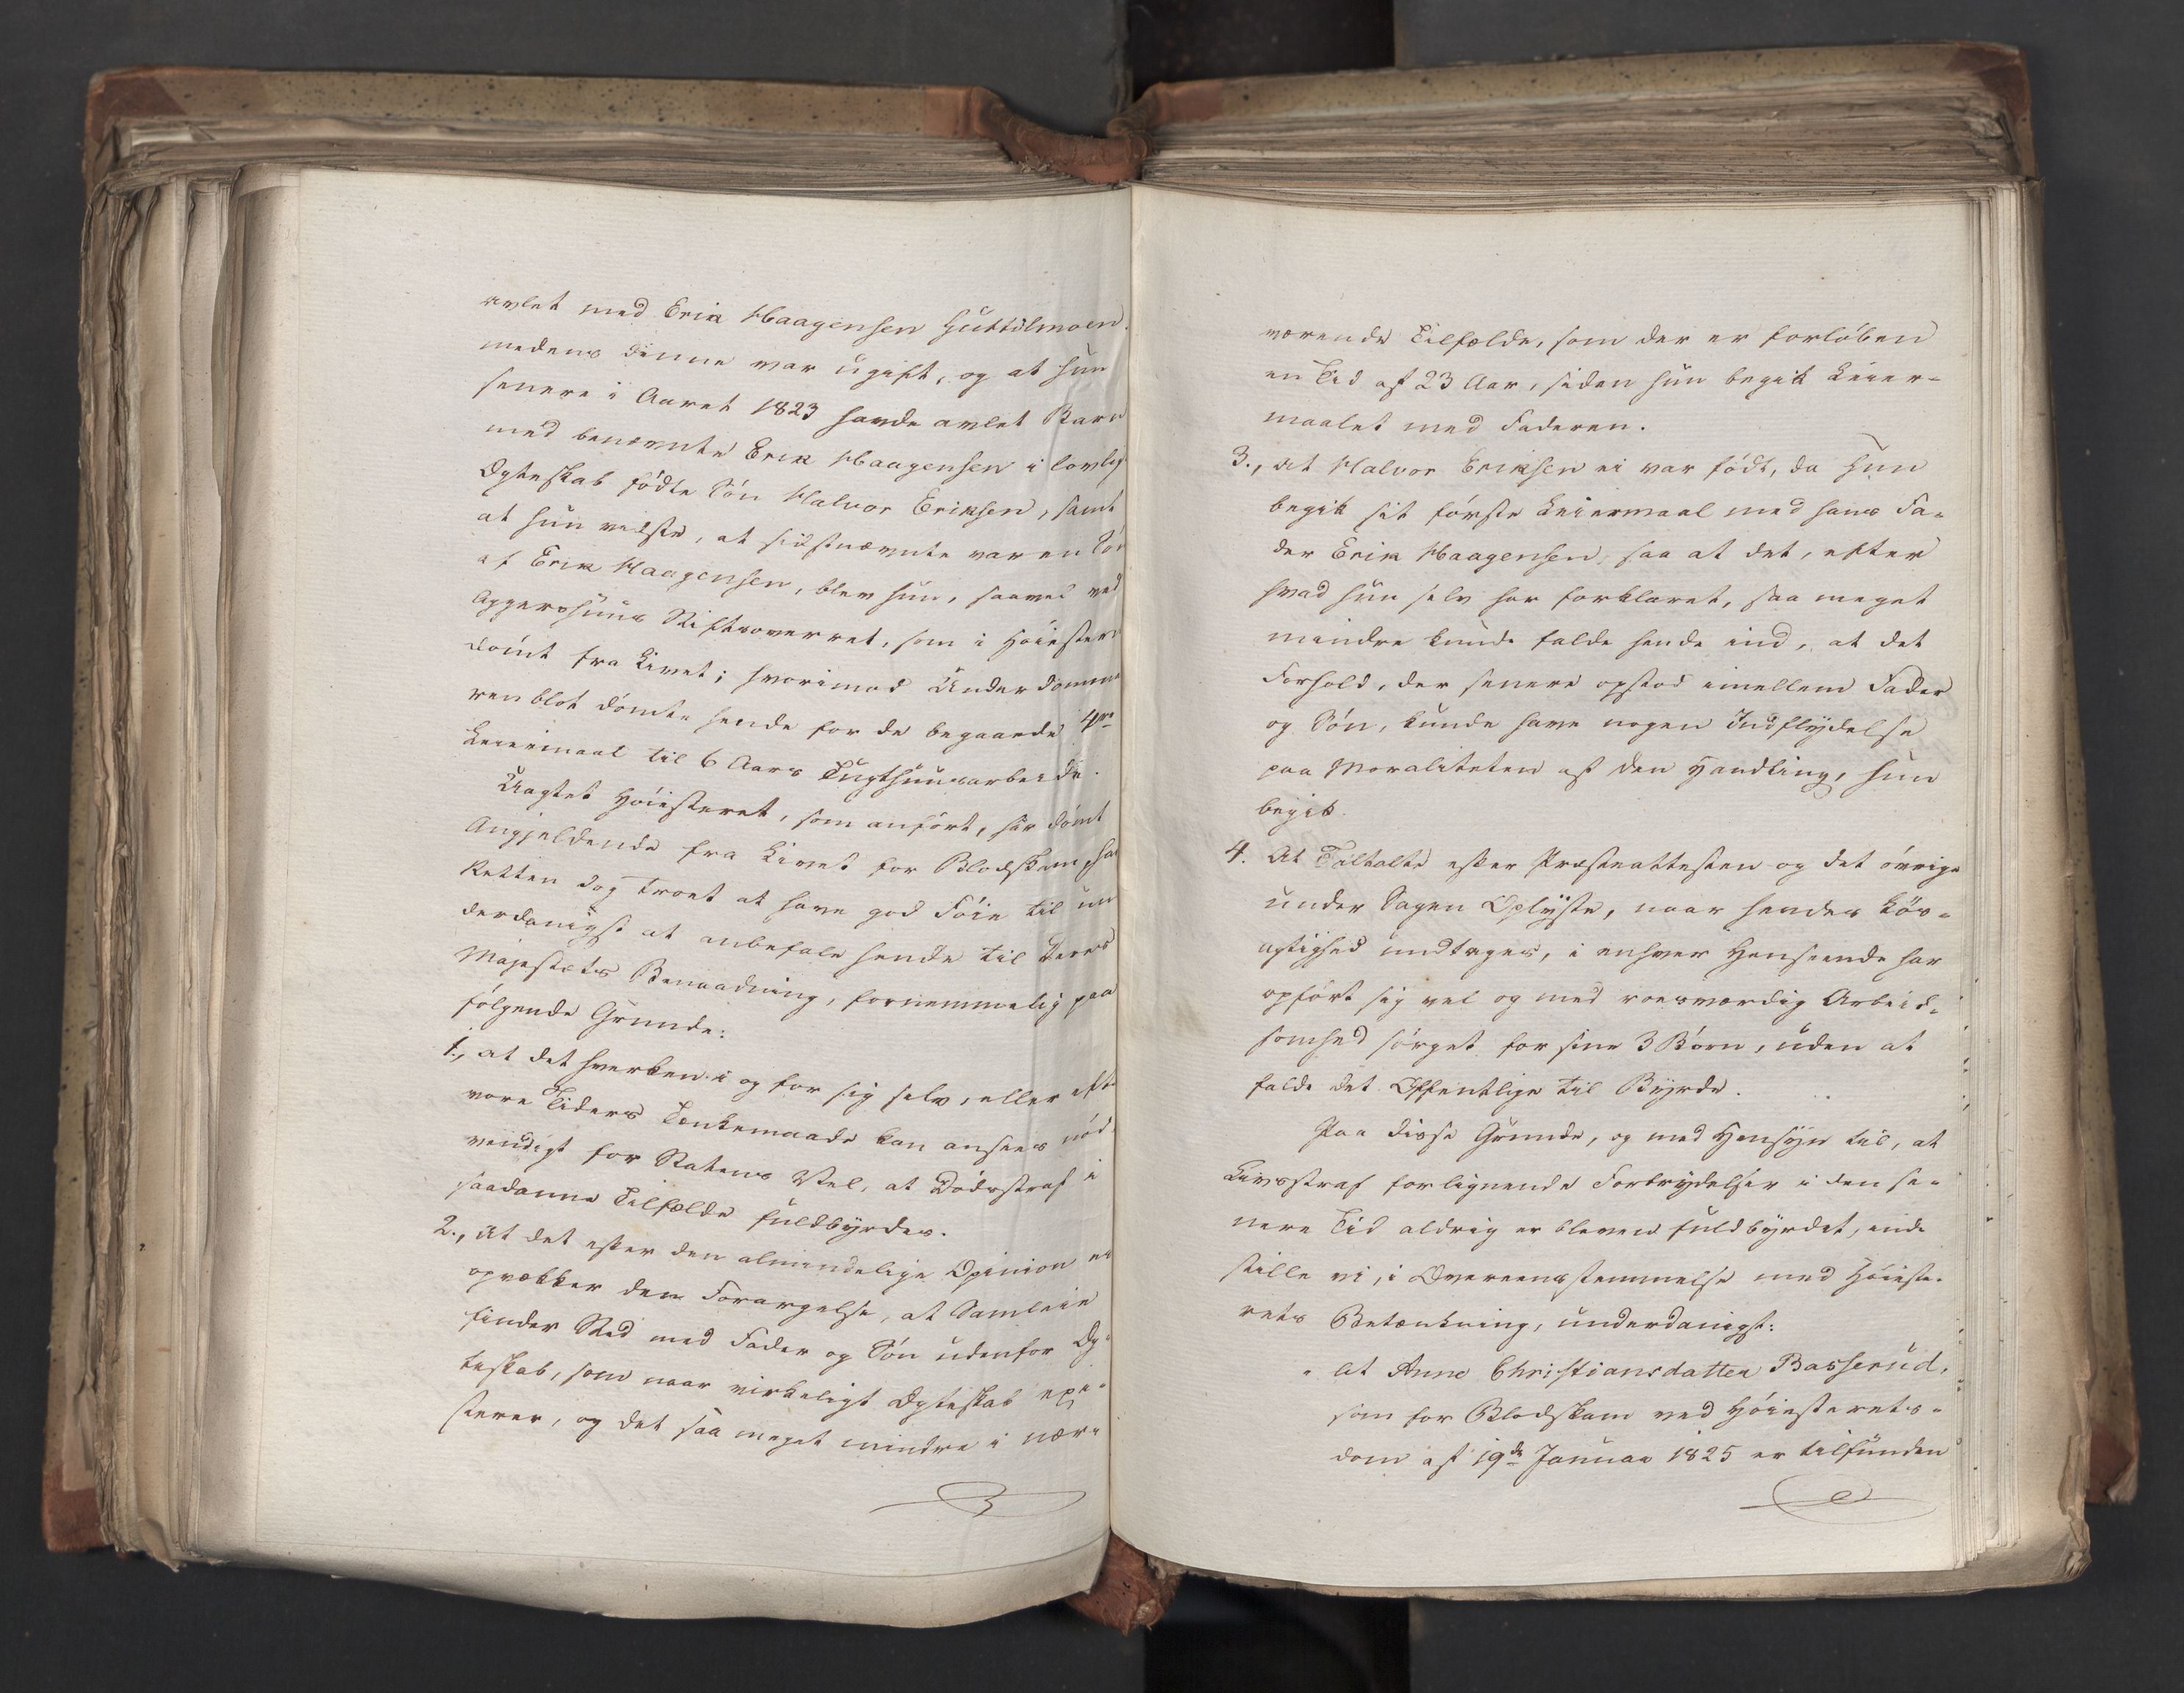 avlet med Erik Haagensen Huttulmoen,
medens denne var ugift, og at hun
senere i Aaret 1823 havde avlet Barn
med benævnte Erik Haagensen i lovlig
Ægteskab födte Sön Halvor Eriksen, samt
at hun vidste, at sidstnævnte var en Sön
af Erik Haagensen, blev hun, saavel ved
Aggershuus Stiftsoverret, som i Höiesteret
dömt fra Livet; hvorimod Underdomme
ren blot dömte hende for de begaaede 4re
Leiermaal til 6 Aars Tugthuusarbeide.
Uagtet Höiesteret, som anfört, har dömt
Angjeldende fra Livet for Blodskam, har
Retten dog troet at have god Föie til un
derdanigst at anbefale hende til Deres
Majestæts Benaadning, fornemmelig paa
fölgende Grunde:
1., at det hverken i og for sig selv, eller efter
vore Tiders Tænkemaade kan ansees nöd-
vendigt for Statens Vel, at Dödsstraf i
saadanne Tilfælde fuldbyrdes.
2., at det efter den almindelige Opinion ei
opvækker den Forargelse, at Samleie
finder Sted med Fader og Sön udenfor Æg-
teskab, som naar virkeligt Ægteskab exi-
sterer, og det saa meget mindre i nær-
værende Tilfælde, som der er forlöben
en Tid af 23 Aar, siden hun begik Leier-
maalet med Faderen.
3., at Halvor Eriksen ei var födt, da hun
begik sit förste Leiermaal med hans Fa-
der Erik Haagensen, saa at det, efter
hvad hun selv har forklaret, saa meget
mindre kunde falde hende ind, at det
Forhold, der senere opstod imellem Fader
og Sön, kunde have nogen Indflydelse
paa Moraliteten af den Handling, hun
begik.
4. At Tiltalte efter Præsteattesten og det övrige
under Sagen Oplyste, naar hendes Lös-
agtighed undtages, i enhver Henseende har
opfört sig vel og med roesværdig Arbeid-
somhed sörget for sine 3 Börn, uden at
falde det Offentlige til Byrde.
Paa disse Grunde, og med Hensyn til, at
Livsstraf for lignende Forbrydelser i den se-
nere Tid aldrig er bleven fuldbyrdet, inde
stille vi, i Overeensstemmelse med Höieste-
rets Betænkning, underdanigst:
" at Anne Christiansdatter Basserud,
som for Blodskam ved Höiesterets-
dom af 19de Januar 1825 er tilfunden